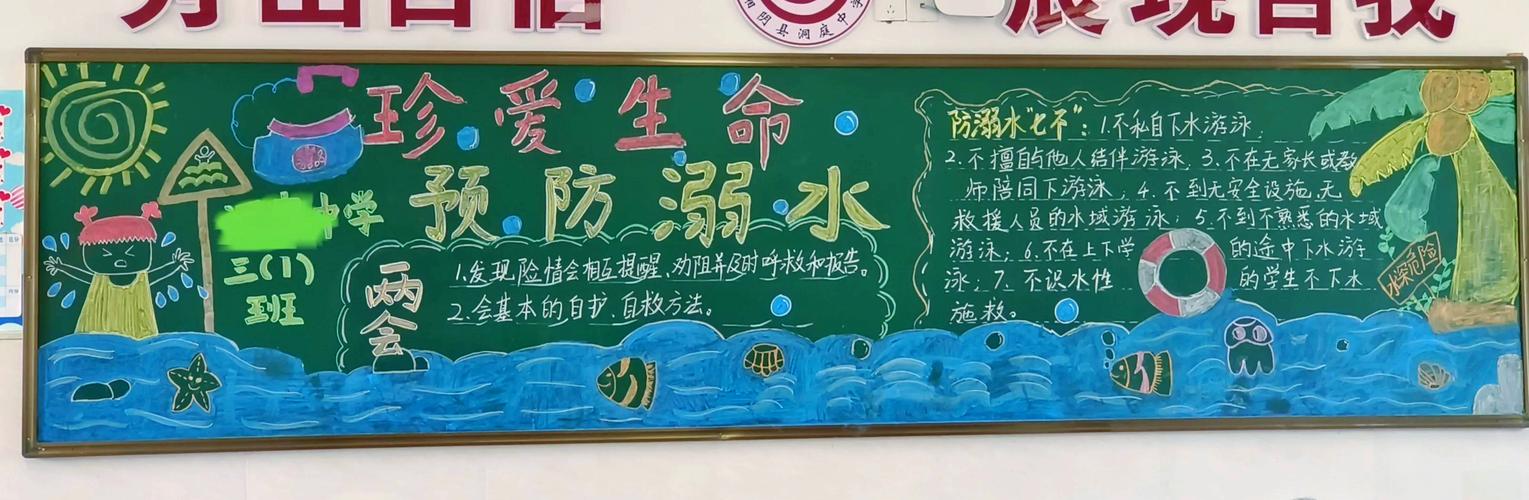 自信
展现自我
湘阴县洞庭中学
珍爱生命
预防溺水
中学
三(1)
班
两会
1.发现险情会相互提醒、劝阻并及时呼救和报告。
2.会基本的自护、自救方法。
防溺水“七不”：1.不私自下水游泳；
2.不擅自与他人结伴游泳；3.不在无家长或教
师陪同下游泳；4.不到无安全设施、无
救援人员的水域游泳；5.不到不熟悉的水域
游泳；6.不在上下学的途中下水游
泳；7.不识水性的学生不下水
施救。
水深危险